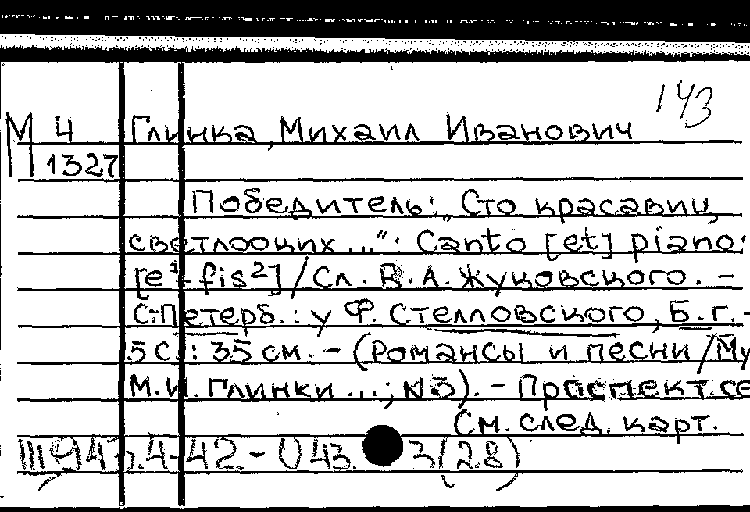 143
М 4 Глинка, Михаил Иванович
1327
Победитель: „Сто красавиц
светлооких...": Canto [et] piano:
[e¹-fis²] / Сл. В.А. Жуковского. –
С-Петерб.: у Ф. Стелловского, Б.г. -
5 с.: 35 см. – (Романсы и песни / Му
М.И. Глинки ...; №3). – Проспект. се
См. след. карт.
4-42.- U 43. 3(28)